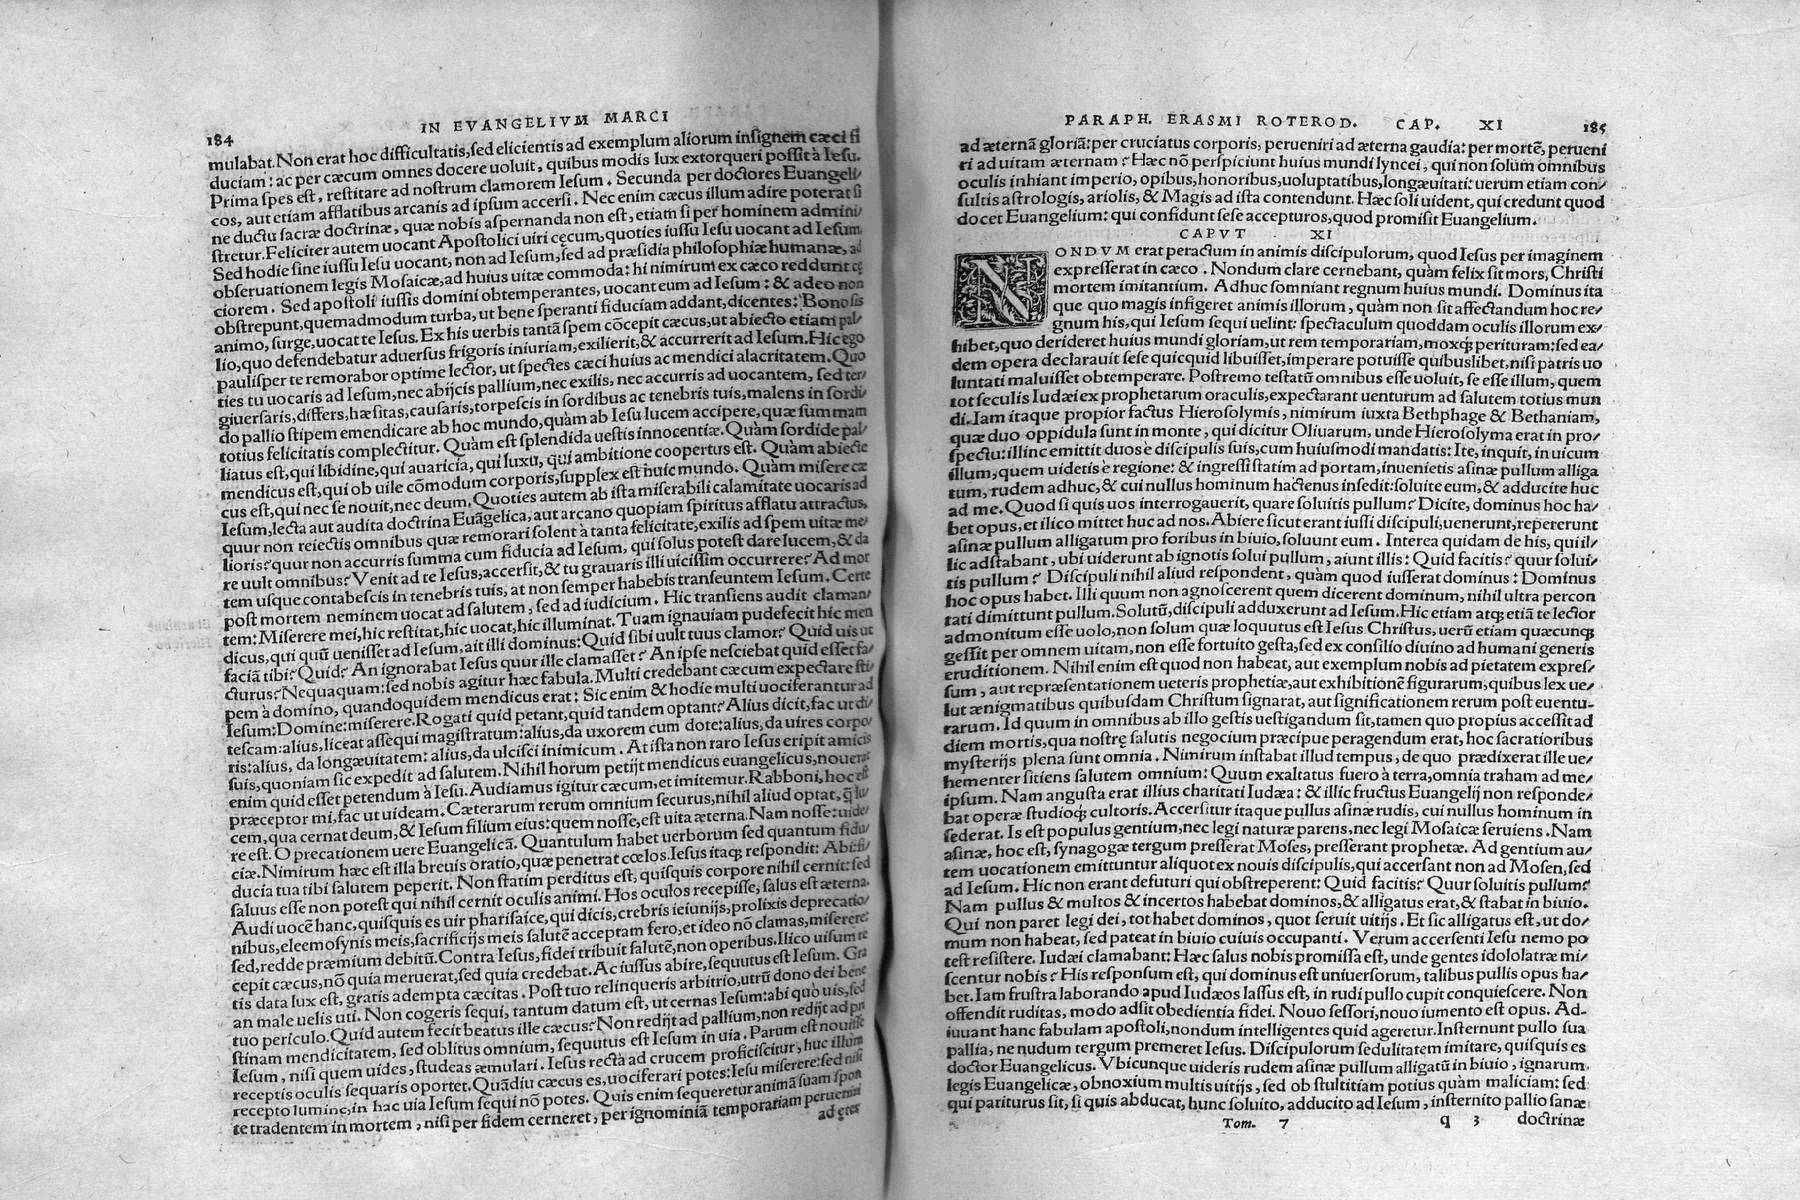 184 IN EVANGELIVM MARCI
mulabat. Non erat hoc difficultatis, sed elicientis ad exemplum aliorum insignem cæci fi
duciam: ac per cæcum omnes docere uoluit, quibus modis lux extorqueri possit à Iesu.
Prima spes est, restitare ad nostrum clamorem Iesum. Secunda per doctores Euangeli/
cos, aut etiam afflatibus arcanis ad ipsum accersi. Nec enim cæcus illum adire poterat si
ne ductu sacræ doctrinæ, quæ nobis aspernanda non est, etiam si per hominem admini/
stretur. Feliciter autem uocant Apostolici uiri cęcum, quoties iussu Iesu uocant ad Iesum.
Sed hodie sine iussu Iesu uocant, non ad Iesum, sed ad præsidia philosophiæ humanæ, ad
obseruationem legis Mosaicæ, ad huius uitæ commoda: hi nimirum ex cæco reddunt cę
ciorem. Sed apostoli iussis domini obtemperantes, uocant eum ad Iesum: & adeo non
obstrepunt, quemadmodum turba, ut bene speranti fiduciam addant, dicentes: Bono sis
animo, surge, uocat te Iesus. Ex his uerbis tantã spem cõcepit cæcus, ut abiecto etiam pal/
lio, quo defendebatur aduersus frigoris iniuriam, exilierit, & accurrerit ad Iesum. Hic ego
paulisper te remorabor optime lector, ut spectes cæci huius ac mendici alacritatem. Quo
ties tu uocaris ad Iesum, nec abijcis pallium, nec exilis, nec accurris ad uocantem, sed ter/
giuersaris, differs, hæsitas, causaris, torpescis in sordibus ac tenebris tuis, malens in sordi/
do pallio stipem emendicare ab hoc mundo, quàm ab Iesu lucem accipere, quæ summam
totius felicitatis complectitur. Quàm est splendida uestis innocentiæ. Quàm sordide pal/
liatus est, qui libidine, qui auaricia, qui luxu, qui ambitione coopertus est. Quàm abiecte
mendicus est, qui ob uile cõmodum corporis, supplex est huic mundo. Quàm misere cæ
cus est, qui nec se nouit, nec deum. Quoties autem ab ista miserabili calamitate uocaris ad
Iesum, lecta aut audita doctrina Euãgelica, aut arcano quopiam spiritus afflatu attractus,
quur non reiectis omnibus quæ remorari solent à tanta felicitate, exilis ad spem uitæ me/
lioris? quur non accurris summa cum fiducia ad Iesum, qui solus potest dare lucem, & da
re uult omnibus? Venit ad te Iesus, accersit, & tu grauaris illi uicissim occurrere? Ad mor
tem usque contabescis in tenebris tuis, at non semper habebis transeuntem Iesum. Certe
post mortem neminem uocat ad salutem, sed ad iudicium. Hic transiens audit claman/
tem: Miserere mei, hic restitat, hic uocat, hic illuminat. Tuam ignauiam pudefecit hic men
dicus, qui quũ uenisset ad Iesum, ait illi dominus: Quid sibi uult tuus clamor? Quid uis ut
faciã tibi? Quid? An ignorabat Iesus quur ille clamasset? An ipse nesciebat quid esset fa/
cturus? Nequaquam: sed nobis agitur hæc fabula. Multi credebant cæcum expectare sti/
pem à domino, quandoquidem mendicus erat: Sic enim & hodie multi uociferantur ad
Iesum: Domine: miserere. Rogati quid petant, quid tandem optant? Alius dicit, fac ut di/
tescam: alius, liceat assequi magistratum: alius, da uxorem cum dote: alius, da uires corpo/
ris: alius, da longæuitatem: alius, da ulcisci inimicum. At ista non raro Iesus eripit amicis
suis, quoniam sic expedit ad salutem. Nihil horum petijt mendicus euangelicus, nouerat
enim quid esset petendum à Iesu. Audiamus igitur cæcum, et imitemur. Rabboni, hoc est
præceptor mi, fac ut uideam. Cæterarum rerum omnium securus, nihil aliud optat, q̃ lu/
cem, qua cernat deum, & Iesum filium eius: quem nosse, est uita æterna. Nam nosse: uide/
re est. O precationem uere Euangelicã. Quantulum habet uerborum sed quantum fidu/
ciæ. Nimirum hæc est illa breuis oratio, quæ penetrat cœlos. Iesus itaq; respondit: Abi: fi/
ducia tua tibi salutem peperit. Non statim perditus est, quisquis corpore nihil cernit: sed
saluus esse non potest qui nihil cernit oculis animi. Hos oculos recepisse, salus est æterna.
Audi uocẽ hanc, quisquis es uir pharisaice, qui dicis, crebris ieiunijs, prolixis deprecatio/
nibus, eleemosynis meis, sacrificijs meis salutẽ acceptam fero, et ideo nõ clamas, miserere:
sed, redde præmium debitũ. Contra Iesus, fidei tribuit salutẽ, non operibus. Ilico uisum re
cepit cæcus, nõ quia meruerat, sed quia credebat. Ac iussus abire, sequutus est Iesum. Gra
tis data lux est, gratis adempta cæcitas. Post tuo relinqueris arbitrio, utrũ dono dei bene
an male uelis uti. Non cogeris sequi, tantum datum est, ut cernas Iesum: abi quò uis, sed
tuo periculo. Quid autem fecit beatus ille cæcus? Non redijt ad pallium, non redijt ad pri
stinam mendicitatem, sed oblitus omnium, sequutus est Iesum in uia. Parum est nouisse
Iesum, nisi quem uides, studeas æmulari. Iesus rectà ad crucem proficiscitur, huc illum
receptis oculis sequaris oportet. Quãdiu cæcus es, uociferari potes: Iesu miserere: sed nisi
recepto lumine, in hac uia Iesum sequi nõ potes. Quis enim sequeretur animã suam spon
te tradentem in mortem, nisi per fidem cerneret, per ignominiã temporariam perueniri
ad ęter
PARAPH. ERASMI ROTEROD. CAP. XI 185
ad æternã gloriã: per cruciatus corporis, perueniri ad æterna gaudia: per mortẽ, perueni
ri ad uitam æternam? Hæc nõ perspiciunt huius mundi lyncei, qui non solum omnibus
oculis inhiant imperio, opibus, honoribus, uoluptatibus, longæuitati: uerum etiam con/
sultis astrologis, ariolis, & Magis ad ista contendunt. Hæc soli uident, qui credunt quod
docet Euangelium: qui confidunt sese accepturos, quod promisit Euangelium.
CAPVT XI
NONDVM erat peractum in animis discipulorum, quod Iesus per imaginem
expresserat in cæco. Nondum clare cernebant, quàm felix sit mors, Christi
mortem imitantium. Adhuc somniant regnum huius mundi. Dominus ita
que quo magis infigeret animis illorum, quàm non sit affectandum hoc re/
gnum his, qui Iesum sequi uelint: spectaculum quoddam oculis illorum ex/
hibet, quo derideret huius mundi gloriam, ut rem temporariam, moxq; perituram: sed ea/
dem opera declarauit sese quicquid libuisset, imperare potuisse quibuslibet, nisi patris uo
luntati maluisset obtemperare. Postremo testatũ omnibus esse uoluit, se esse illum, quem
tot seculis Iudæi ex prophetarum oraculis, expectarant uenturum ad salutem totius mun
di. Iam itaque propior factus Hierosolymis, nimirum iuxta Bethphage & Bethaniam,
quæ duo oppidula sunt in monte, qui dicitur Oliuarum, unde Hierosolyma erat in pro/
spectu: illinc emittit duos è discipulis suis, cum huiusmodi mandatis: Ite, inquit, in uicum
illum, quem uidetis è regione: & ingressi statim ad portam, inuenietis asinæ pullum alliga
tum, rudem adhuc, & cui nullus hominum hactenus insedit: soluite eum, & adducite huc
ad me. Quod si quis uos interrogauerit, quare soluitis pullum? Dicite, dominus hoc ha/
bet opus, et ilico mittet huc ad nos. Abiere sicut erant iussi discipuli, uenerunt, repererunt
asinæ pullum alligatum pro foribus in biuio, soluunt eum. Interea quidam de his, qui il/
lic adstabant, ubi uiderunt ab ignotis solui pullum, aiunt illis: Quid facitis? quur solui/
tis pullum? Discipuli nihil aliud respondent, quàm quod iusserat dominus: Dominus
hoc opus habet. Illi quum non agnoscerent quem dicerent dominum, nihil ultra percon
tati dimittunt pullum. Solutũ, discipuli adduxerunt ad Iesum. Hic etiam atq; etiã te lector
admonitum esse uolo, non solum quæ loquutus est Iesus Christus, uerũ etiam quæcunq;
gessit per omnem uitam, non esse fortuito gesta, sed ex consilio diuino ad humani generis
eruditionem. Nihil enim est quod non habeat, aut exemplum nobis ad pietatem expres/
sum, aut repræsentationem ueteris prophetiæ, aut exhibitionẽ figurarum, quibus lex ue/
lut ænigmatibus quibusdam Christum signarat, aut significationem rerum post euentu-
rarum. Id quum in omnibus ab illo gestis uestigandum sit, tamen quo propius accessit ad
diem mortis, qua nostrę salutis negocium præcipue peragendum erat, hoc sacratioribus
mysterijs plena sunt omnia. Nimirum instabat illud tempus, de quo prædixerat ille ue/
hementer sitiens salutem omnium: Quum exaltatus fuero à terra, omnia traham ad me/
ipsum. Nam angusta erat illius charitati Iudæa: & illic fructus Euangelij non responde/
bat operæ studioq; cultoris. Accersitur itaque pullus asinæ rudis, cui nullus hominum in
sederat. Is est populus gentium, nec legi naturæ parens, nec legi Mosaicæ seruiens. Nam
asinæ, hoc est, synagogæ tergum presserat Moses, presserant prophetæ. Ad gentium au/
tem uocationem emittuntur aliquot ex nouis discipulis, qui accersant non ad Mosen, sed
ad Iesum. Hic non erant defuturi qui obstreperent: Quid facitis? Quur soluitis pullum?
Nam pullus & multos & incertos habebat dominos, & alligatus erat, & stabat in biuio.
Qui non paret legi dei, tot habet dominos, quot seruit uitijs. Et sic alligatus est, ut do/
mum non habeat, sed pateat in biuio cuiuis occupanti. Verum accersenti Iesu nemo po
test resistere. Iudæi clamabant: Hæc salus nobis promissa est, unde gentes idololatræ mi/
scentur nobis? His responsum est, qui dominus est uniuersorum, talibus pullis opus ha/
bet. Iam frustra laborando apud Iudæos lassus est, in rudi pullo cupit conquiescere. Non
offendit ruditas, modo adsit obedientia fidei. Nouo sessori, nouo iumento est opus. Ad-
iuuant hanc fabulam apostoli, nondum intelligentes quid ageretur. Insternunt pullo sua
pallia, ne nudum tergum premeret Iesus. Discipulorum sedulitatem imitare, quisquis es
doctor Euangelicus. Vbicunque uideris rudem asinæ pullum alligatũ in biuio, ignarum
legis Euangelicæ, obnoxium multis uitijs, sed ob stultitiam potius quàm maliciam: sed
qui pariturus sit, si quis abducat, hunc soluito, adducito ad Iesum, insternito pallio sanæ
Tom. 7 q 3 doctrinæ